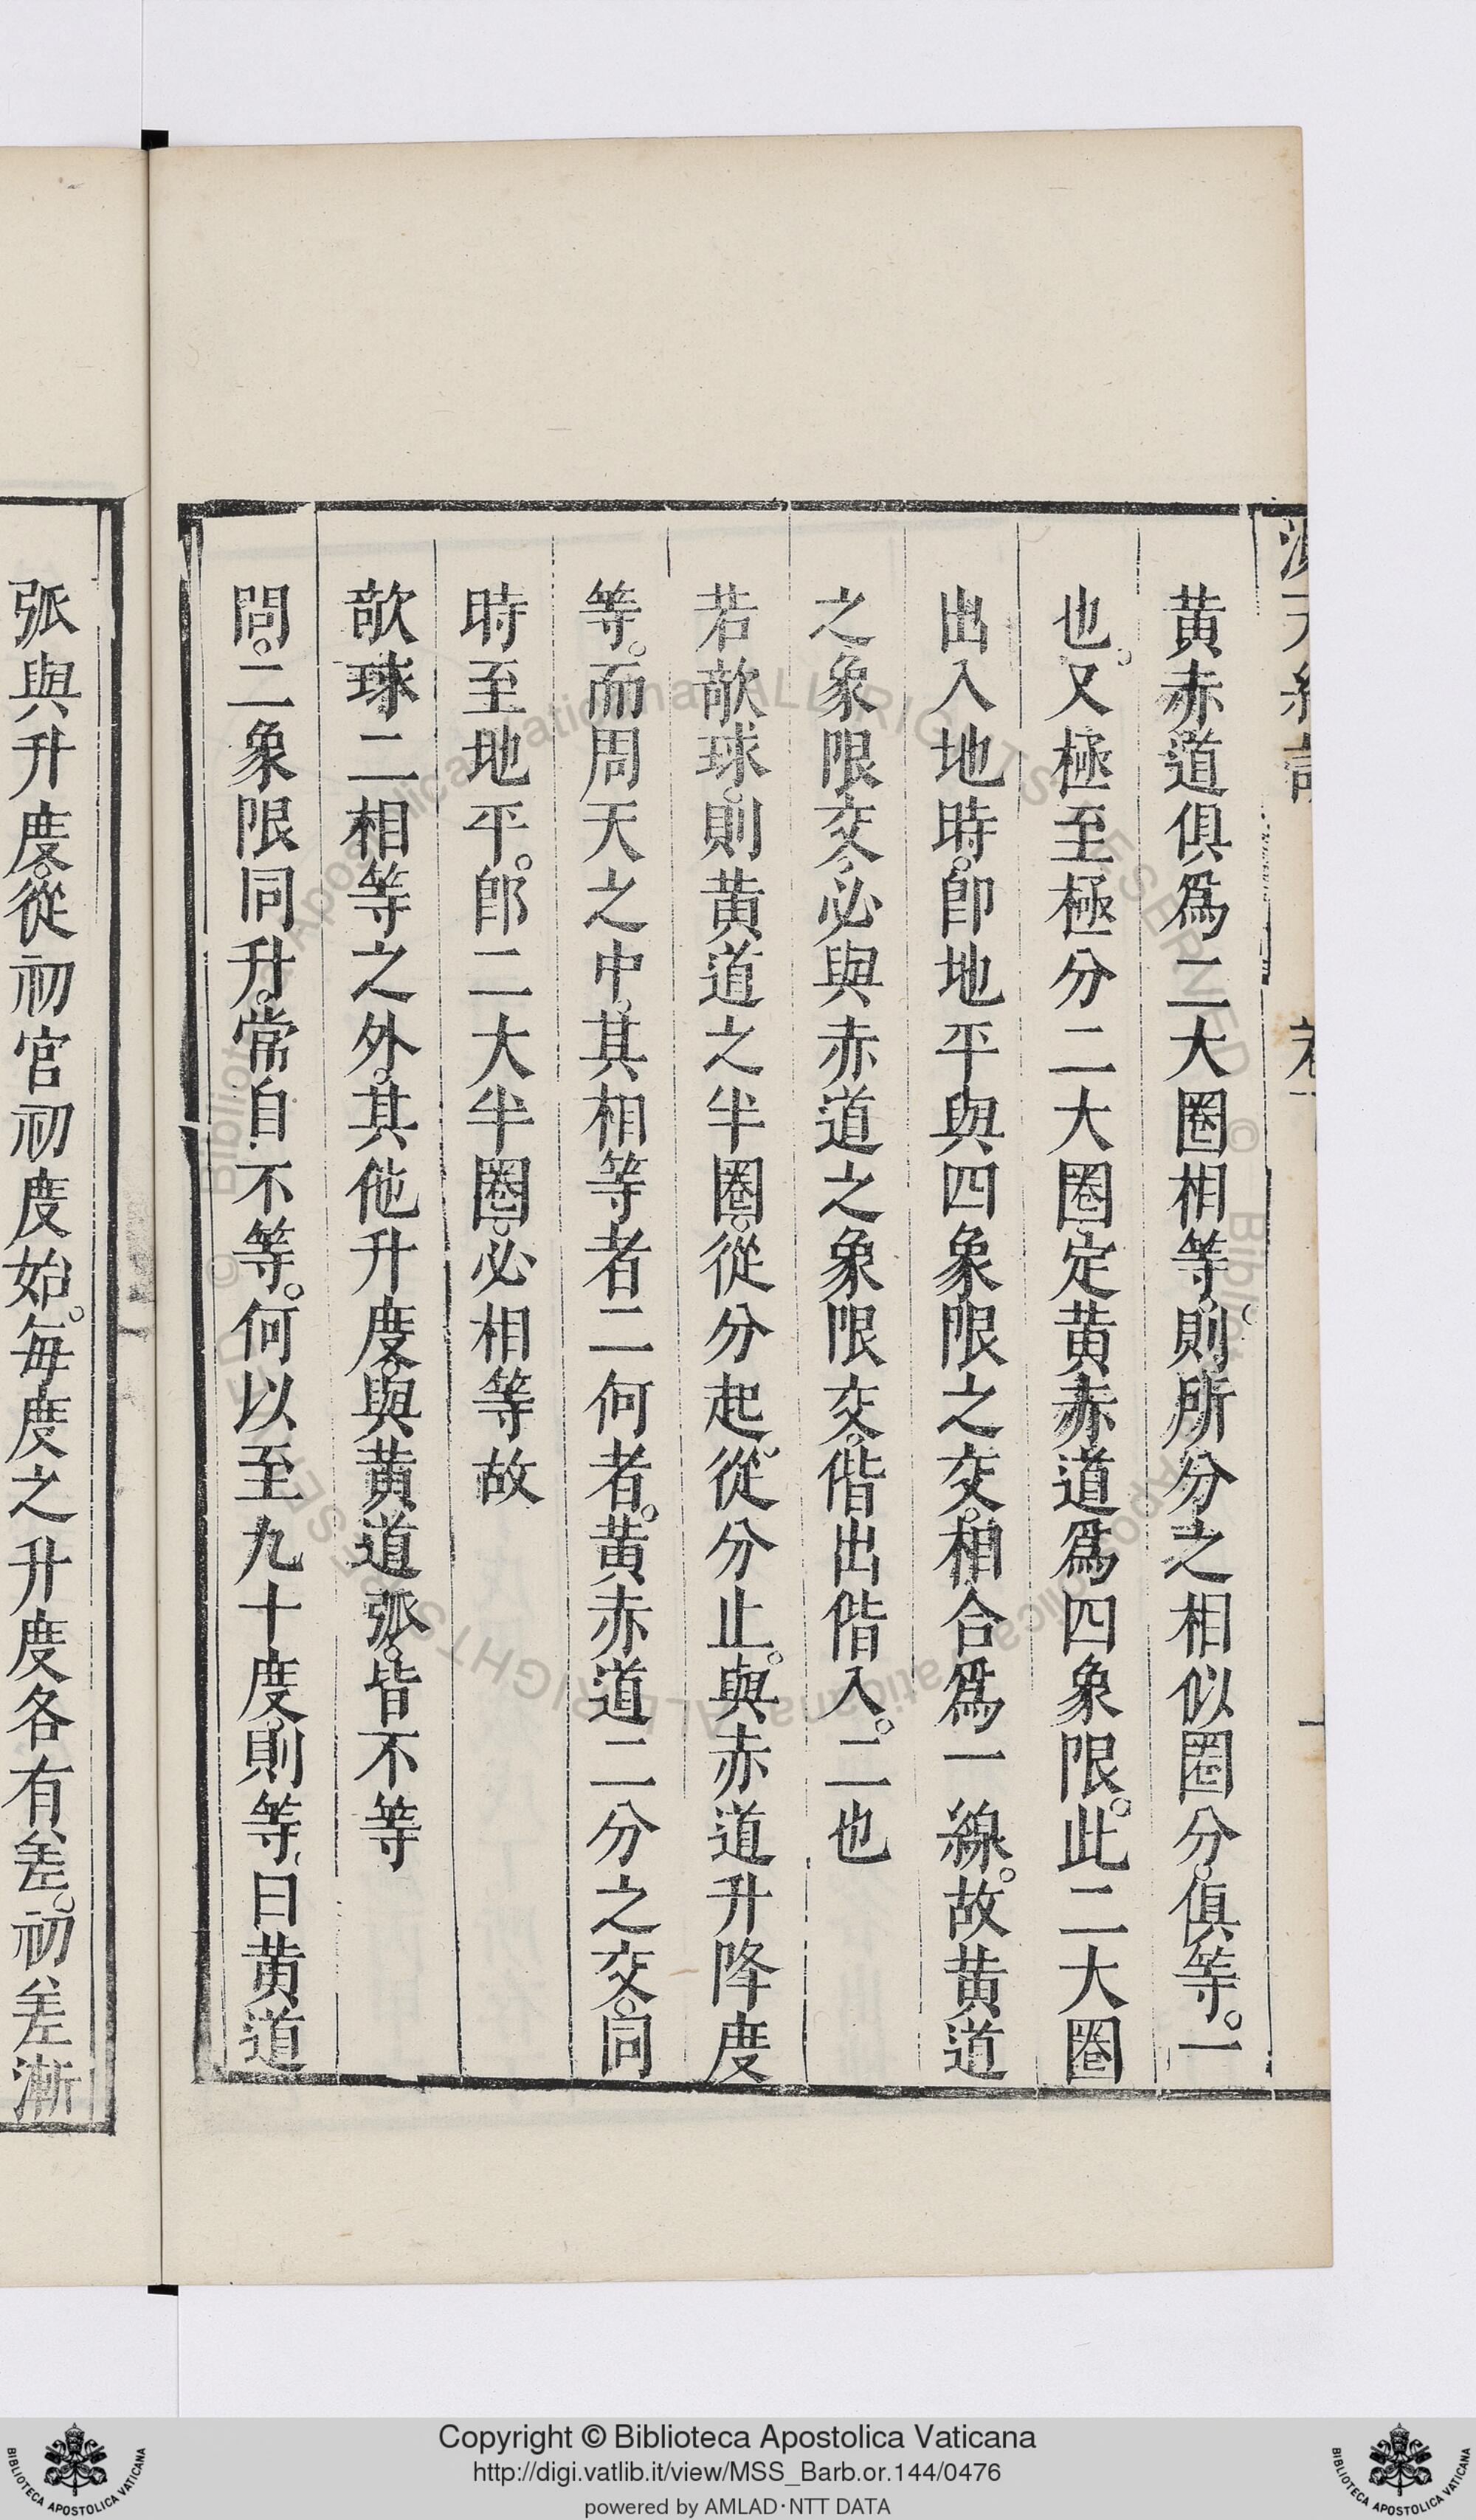 黄赤道俱爲二大圈相等。則所分之相似圈分。俱等。一
也。又極至極分二大圈定黄赤道爲四象限。此二大圈
出入地時。卽地平與四象限之交。相合爲一線。故黄道
之象限交。必與赤道之象限交。偕出偕入。二也
若欹球。則黄道之半圈。從分起。從分止。與赤道升降度
等。而周天之中。其相等者二何者。黄赤道二分之交。同
時至地平。卽二大半圈。必相等故
欹球二相等之外。其他升度。與黄道弧。皆不等
問。二象限同升。常自不等。何以至九十度。則等。曰黄道
弧與升度。從初宮初度始。每度之升度各有差。初差漸
Copyright © Biblioteca Apostolica Vaticana
http://digi.vatlib.it/view/MSS_Barb.or.144/0476
powered by AMLAD·NTT DATA
BIBLIOTECA APOSTOLICA VATICANA
BIBLIOTECA APOSTOLICA VATICANA